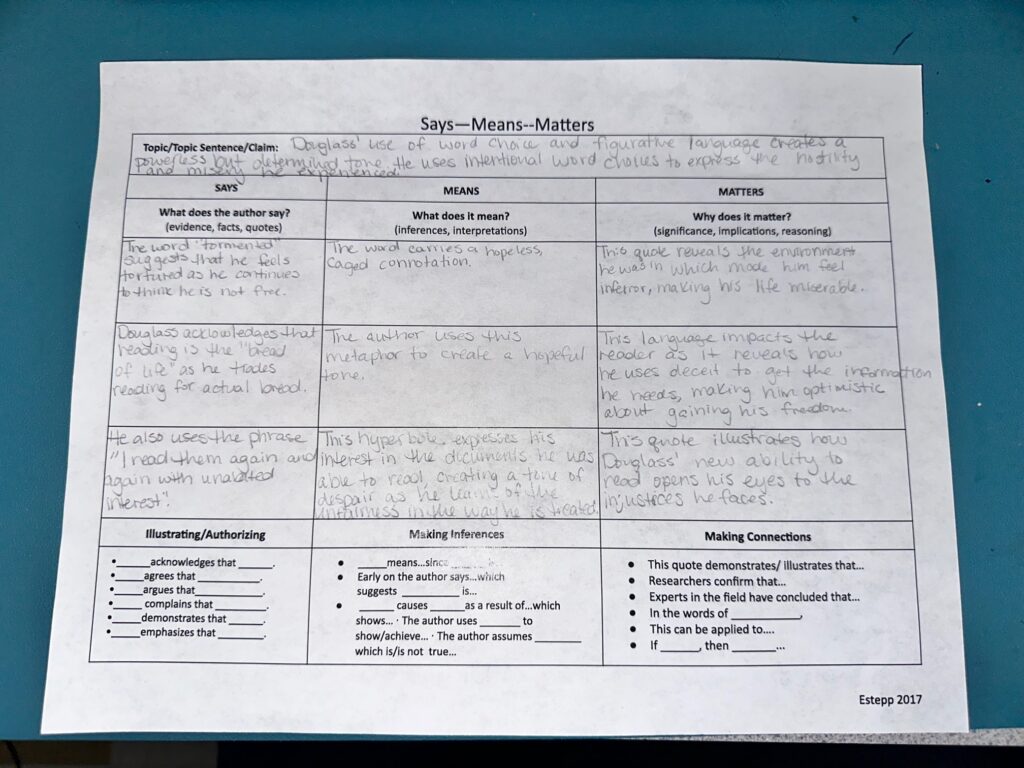 Says—Means--Matters
Topic/Topic Sentence/Claim: Douglass' use of word choice and figurative language creates a
powerless but determined tone. He uses intentional word choices to express the hostility
and misery he experienced.
SAYS
What does the author say?
(evidence, facts, quotes)
MEANS
What does it mean?
(inferences, interpretations)
MATTERS
Why does it matter?
(significance, implications, reasoning)
The word "tormented"
suggests that he feels
tortured as he continues
to think he is not free.
The word carries a hopeless,
caged connotation.
This quote reveals the environment
he was in which made him feel
inferror, making his life miserable.
Douglass acknowledges that
reading is the "bread
of life" as he trades
reading for actual bread.
The author uses this
metaphor to create a hopeful
tone.
This language impacts the
reader as it reveals how
he uses deceit to get the information
he needs, making him optimistic
about gaining his freedom.
He also uses the phrase
"I read them again and
again with unabated
interest".
This hyperbole expresses his
interest in the documents he was
able to read, creating a tone of
despair as he learns of the
unfairness in the way he is treated.
This quote illustrates how
Douglass' new ability to
read opens his eyes to the
injustices he faces.
Illustrating/Authorizing
•_____acknowledges that _____.
•_____agrees that _________.
•_____argues that _________.
•_____ complains that ________.
•_____demonstrates that _____.
•_____emphasizes that _____.
Making Inferences
• _____means...since
• Early on the author says...which
suggests _________ is...
• ______ causes _____ as a result of...which
shows... · The author uses ______ to
show/achieve... · The author assumes _______
which is/is not true...
Making Connections
• This quote demonstrates/ illustrates that...
• Researchers confirm that...
• Experts in the field have concluded that...
• In the words of __________,
• This can be applied to....
• If ______, then _______...
Estepp 2017